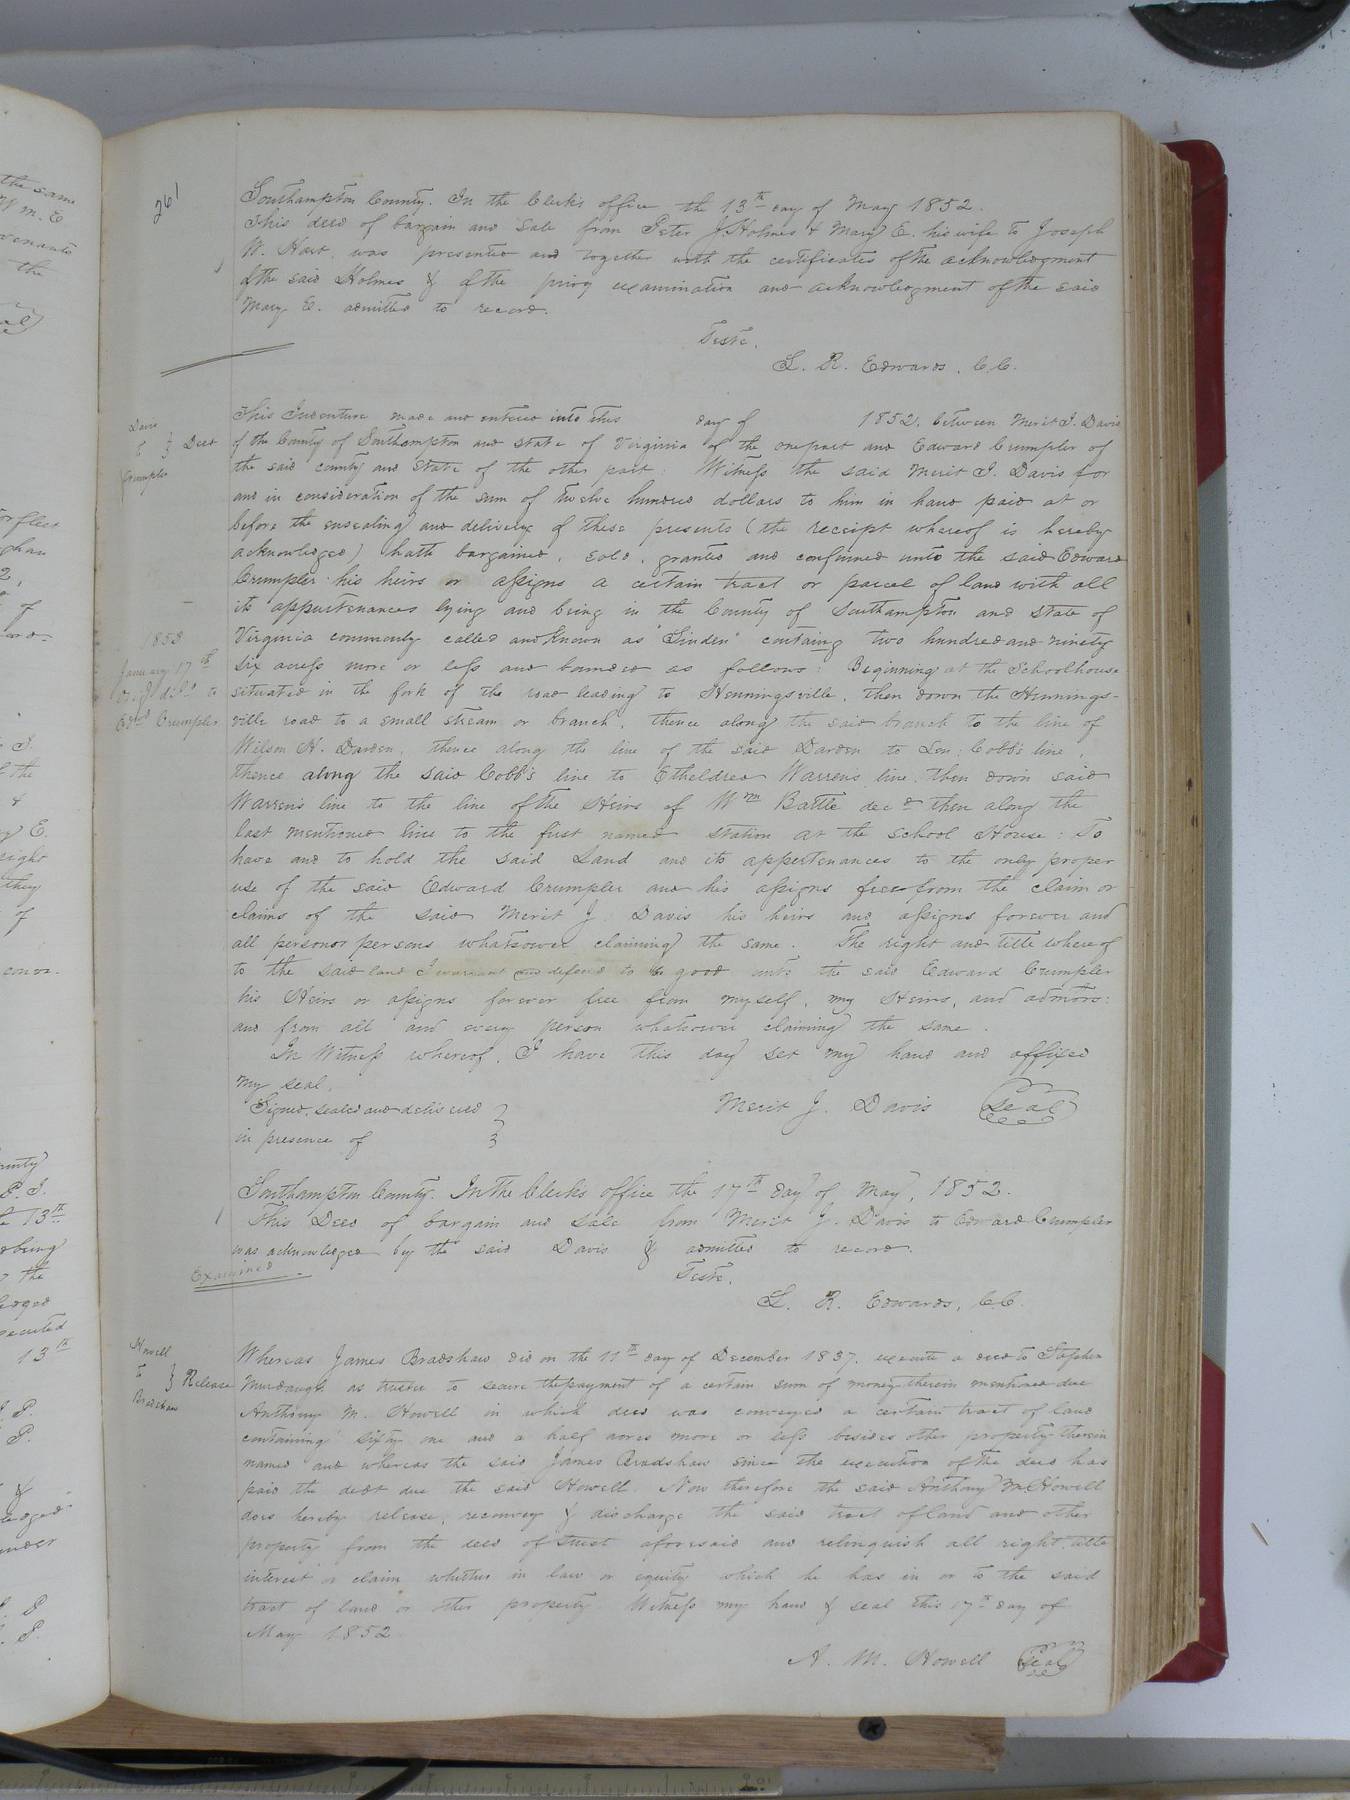 261
Southampton County. In the Clerk's office the 13th day of May 1852.
This deed of bargain and sale from Peter J. Holmes & Mary E. his wife to Joseph
W. Hart, was presented and together with the certificates of the acknowledgment
of the said Holmes & of the privy examination and acknowledgment of the said
Mary E. admitted to record.
Teste,
L. R. Edwards, C.C.
Davis
to } Deed
Crumpler
This Indenture made and entered into this day of 1852, between Merit J. Davis
of the County of Southampton and state of Virginia of the one part and Edward Crumpler of
the said county and state of the other part: Witness the said Merit J. Davis for
and in consideration of the sum of twelve hundred dollars to him in hand paid at or
before the ensealing and delivery of these presents (the receipt whereof is hereby
acknowledged) hath bargained, sold, granted and confirmed unto the said Edward
Crumpler his heirs or assigns a certain tract or parcel of land with all
its appurtenances lying and being in the County of Southampton and state of
Virginia commonly called and known as "Linden" containg two hundred and ninety
six acress more or less and bounded as follows: Beginning at the Schoolhouse
situated in the fork of the road leading to Henningsville, then down the Hennings-
ville road to a small stream or branch, thence along the said branch to the line of
Wilson H. Darden, thence along the line of the said Darden to Len: Cobb's line,
thence along the said Cobb's line to Etheldred Warren's line, then down said
Warren's line to the line of the Heirs of Wm Battle decd then along the
last mentioned line to the first named station at the School House: To
have and to hold the said Land and its appertenances to the only proper
use of the said Edward Crumpler and his assigns free from the claim or
claims of the said Merit J. Davis his heirs and assigns forever and
all person or persons whatsoever claiming the same. The right and title whereof
to the said land I warrant and defend to be good unto the said Edward Crumpler
his Heirs or assigns forever free from myself, my Heirs, and admors:
and from all and every person whatsoever claiming the same.
In Witness whereof, I have this day set my hand and affixed
my seal.
Signed, sealed and delivered }
in presence of }
Merit J. Davis Seal
1853
January 17th
to
Edwd Crumpler
Southampton County. In the Clerk's office the 17th day of May, 1852.
This Deed of bargain and sale from Merit J. Davis to Edward Crumpler
was acknowledged by the said Davis & admitted to record.
Examined
Teste,
L. R. Edwards, C.C.
Howell
to } Release
Bradshaw
Whereas James Bradshaw did on the 11th day of December 1837, execute a deed to Stephen
Murdaugh as trustee to secure the payment of a certain sum of money therein mentioned due
Anthony M. Howell in which deed was conveyed a certain tract of land
containing sixty one and a half acres more or less besides other property therein
named and whereas the said James Bradshaw since the execution of the deed has
paid the debt due the said Howell. Now therefore the said Anthony M. Howell
does hereby release, reconvey & discharge the said tract of land and other
property from the deed of trust aforesaid and relinquish all right title
interest or claim whether in law or equity which he has in or to the said
tract of land or other property. Witness my hand & seal this 17th day of
May 1852
A. M. Howell Seal